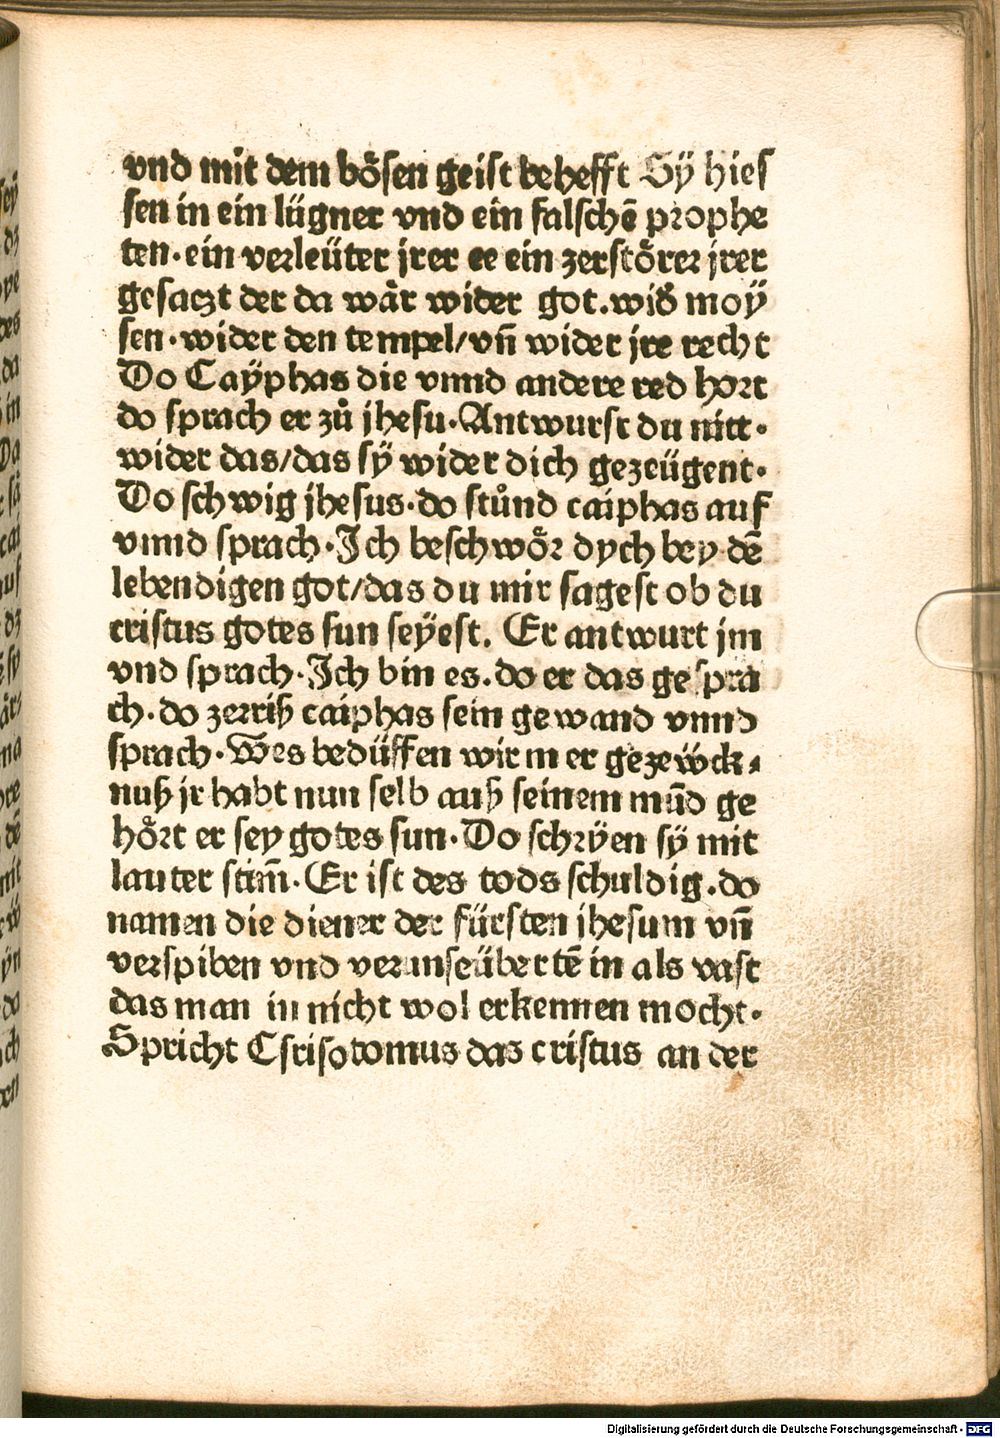 vnd mit dem bösen geist behefft Sÿ hieſ
ſen in ein lügner vnd ein falſchē prophe
ten·ein verleüter jrer ee ein zerſtörer jrer
geſaczt der da wär wider got.wid̓ moÿ
ſen·wider den tempel/vn̄ wider jre recht
Do Caÿphas die vnnd andere red hort
do ſprach er zů jheſu·Antwurſt du nitt·
wider das/das ſÿ wider dich gezeügent·
Do ſchwig jheſus·do ſtůnd caiphas auf
vnnd ſprach·Ich beſchwör dych bey dē
lebendigen got/das du mir ſageſt ob du
criſtus gotes ſun ſeÿeſt. Er antwurt jm
vnd ſprach·Ich bin es.do er das geſpra
ch·do zerriß caiphas ſein gewand vnnd
ſprach·Wes bedüffen wir mer gezeẅck⸗
nuß jr habt nun ſelb auß ſeinem mūd ge
hört er ſey gotes ſun·Do ſchrÿen ſÿ mit
lauter ſtim̄·Er iſt des tods ſchuldig.do
namen die diener der fürſten jheſum vn̄
verſpiben vnd verunſeübertē in als vaſt
das man in nicht wol erkennen mocht·
Spricht Cſriſotomus das criſtus an der
ſeÿ
dz
des
da
in
Da
Digitalisierung gefördert durch die Deutsche Forschungsgemeinschaft · DFG